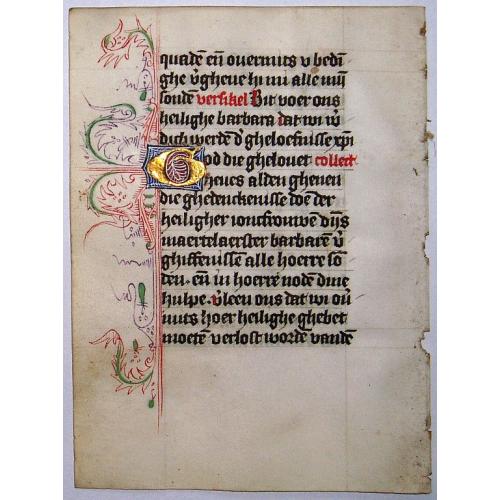 quadē eñ overmits v bedin
ghe v̄gheue hi mi alle mijn
sonden versikel Bit voer ons
heilighe barbara dat wi w̄
dich werdē d' gheloefnisse xp̄i
God die ghelouet collect
heues alden gheuen
die ghedenckenisse doe der
heiligher ioncfrouwen dijns
maertelaerster barbarē v̄
ghiffenisse alle hoerre son
den. eñ in hoerre nodē dine
hulpe. v̄leen ons dat wi ou̅
mits hoer heilighe ghebet
moetē verlost wordē vandē